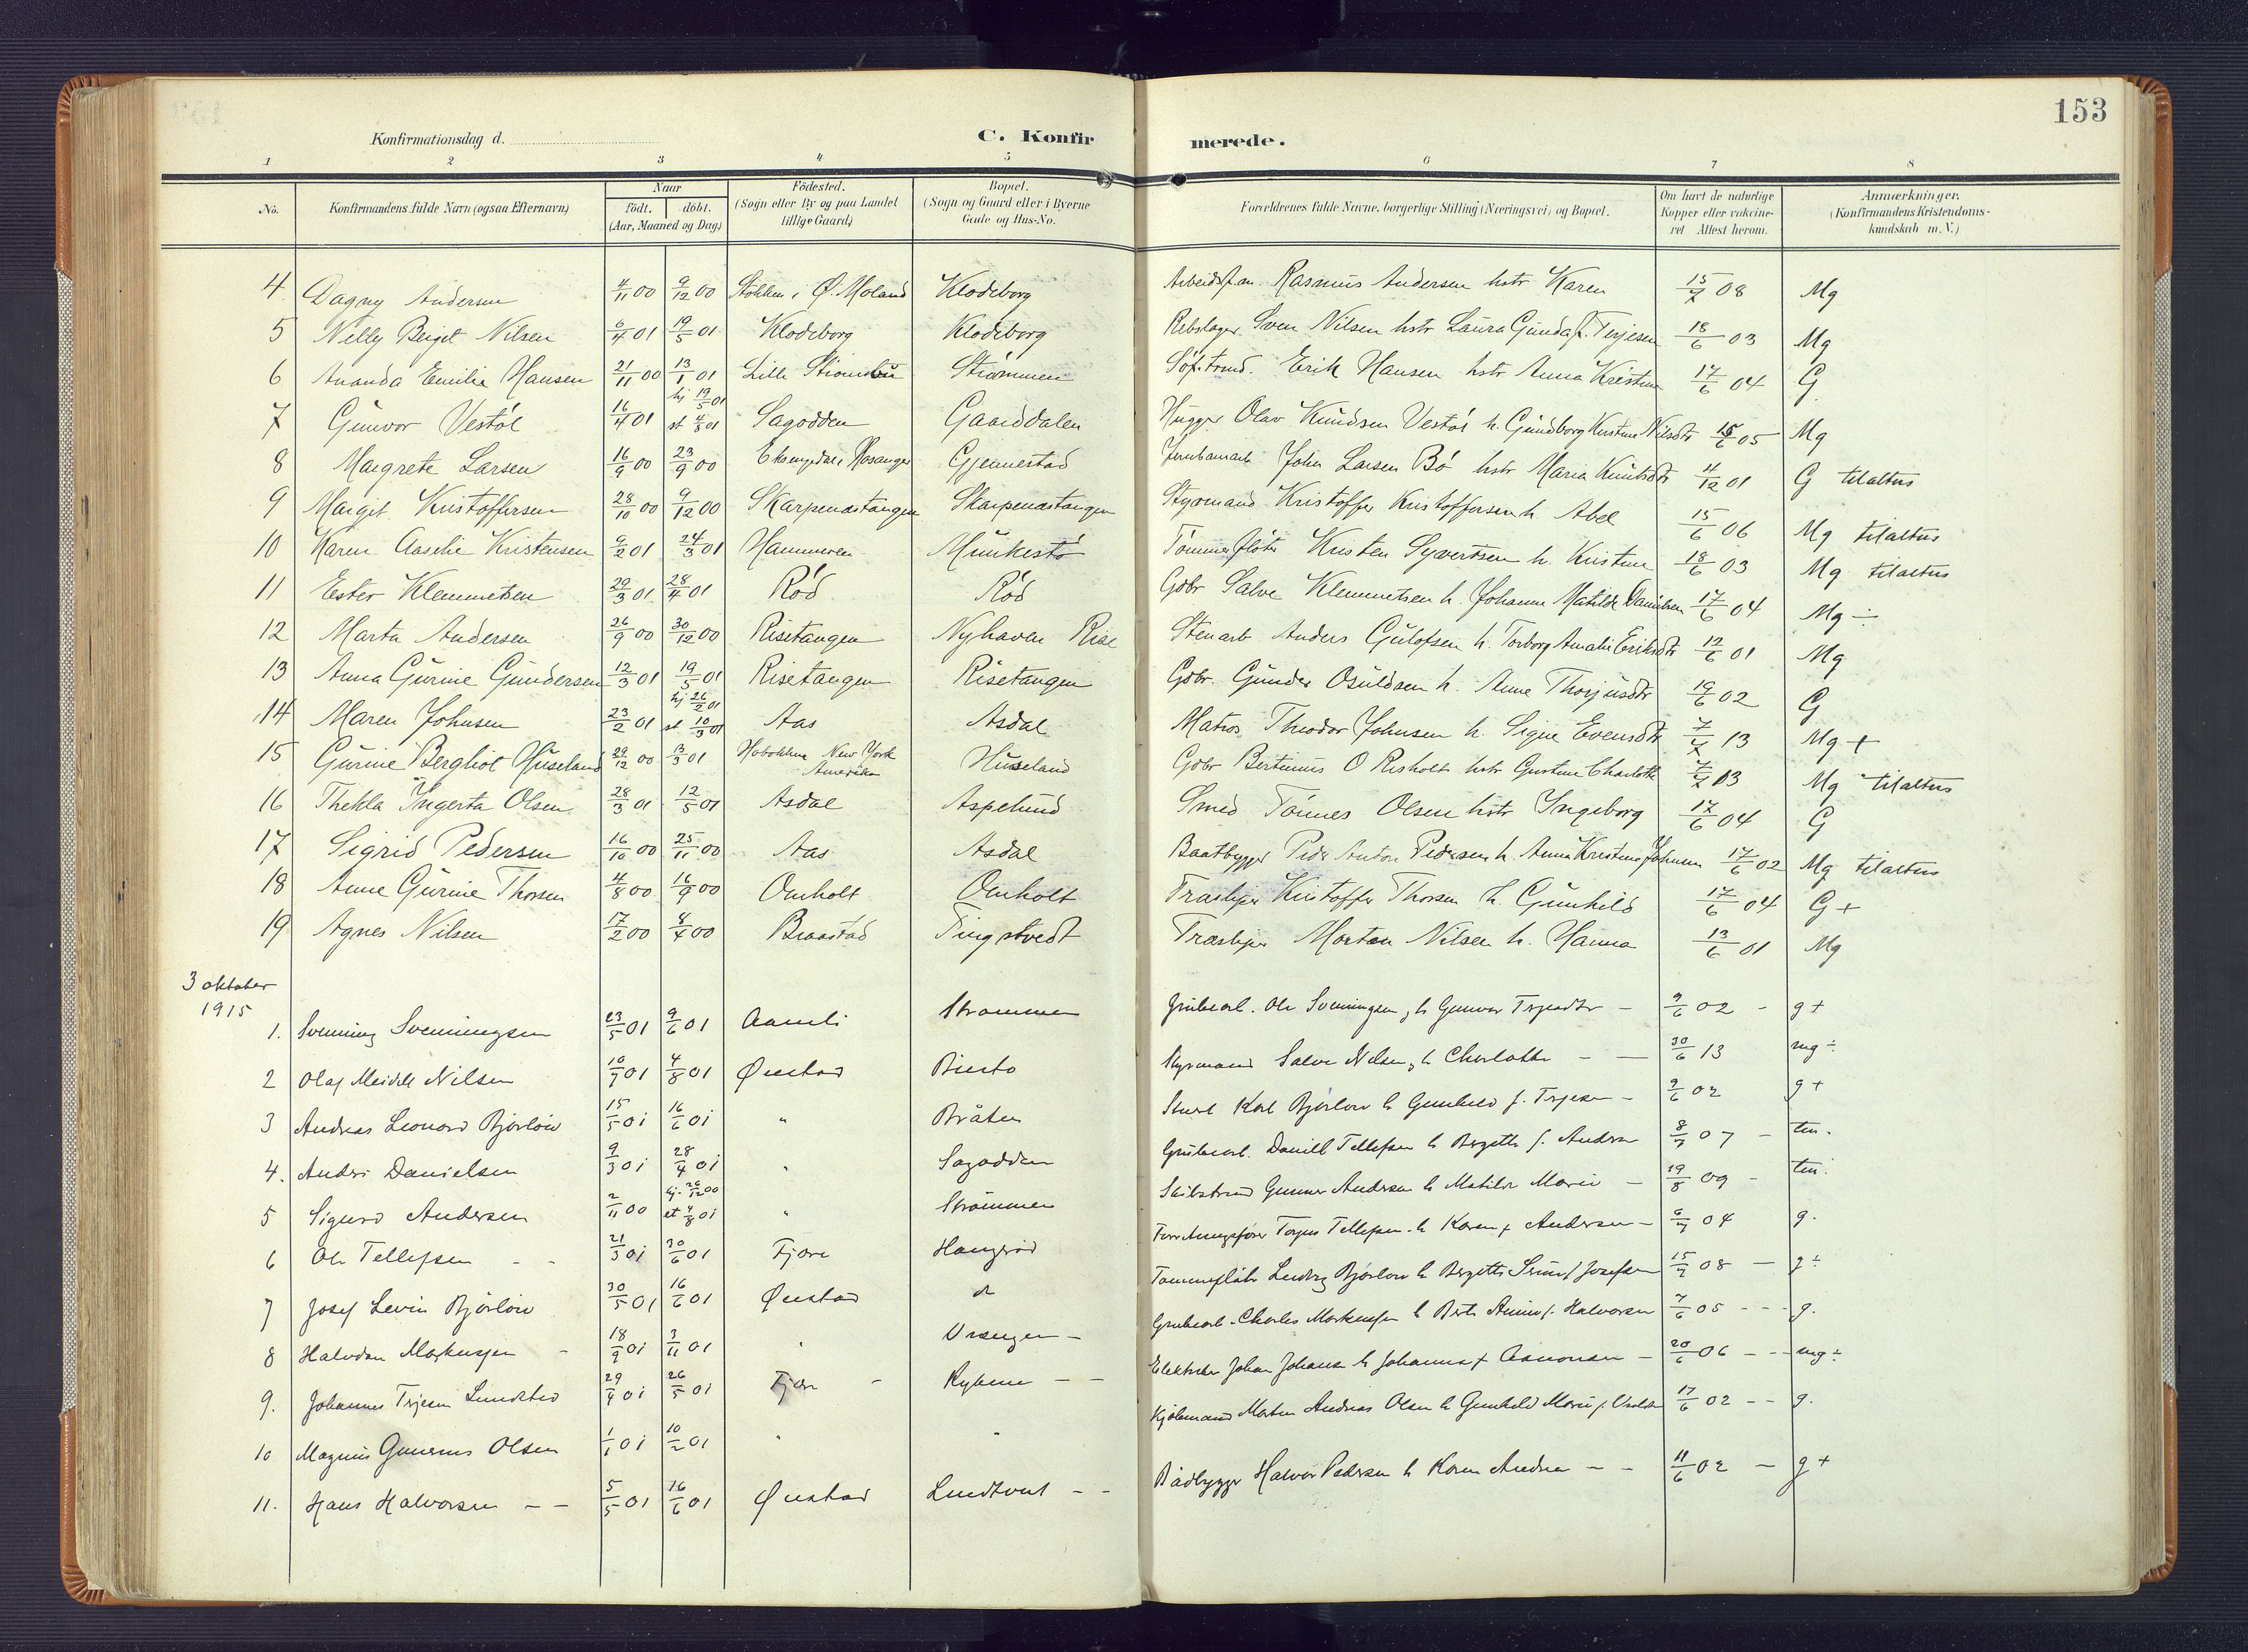 153
Konfirmationsdag d.
C. Konfirmerede.
1 2 3 4 5 6 7 8
No. Konfirmandens fulde Navn (ogsaa Efternavn) Naar født. døbt. (Aar, Maaned og Dag) Fødested. (Sogn eller By og paa Landet tillige Gaard) Bopæl. (Sogn og Gaard eller i Byerne Gade og Hus-No. Forældrenes fulde Navne, borgerlige Stilling (Næringsvei) og Bopæl. Om havt de naturlige Kopper eller vakcineret Attest herom. Anmærkninger. (Konfirmandens Kristendomskundskab m. V.)
4 Dagny Andersen 4/11 00 9/12 00 Stokken i Ø. Moland Klodeborg Rasmus Andersen hstr Karen 15/7 08 Mg
5 Nelly Bergit Nilsen 6/4 01 19/5 01 Klodeborg Klodeborg Rebslager Sven Nilsen hstr Laura Gunda f. Terjesen 18/6 03 Mg
6 Ananda Emilie Hansen 21/11 00 13/1 01 Lille Strømmen Erik Hansen hstr Anna Kristine 17/6 04 G
7 Gunvor Vestøl 16/4 01 hj 19/5 01 st 4/8 01 Sagodden Gaarddalen Hugger Olav Knudsen Vestøl h. Gundborg Kirstine Nilsdtr 15/6 05 Mg
8 Margrete Larsen 16/9 00 23/9 00 Gjennestad John Larsen Bø hstr Maria Knutsdtr 4/12 01 G tilaltus
9 Margit Kristoffersen 28/10 00 9/12 00 Skarpenæstangen Skarpenæstangen Styrmand Kristoffer Kristoffersen h. Abel 15/6 06 Mg tilaltus
10 Karen Aaselie Kristensen 9/2 01 24/3 01 Hammeren Munkestø Tømmerfløter Kristen Syvertsen h. Kristine 18/6 03 Mg tilaltus
11 Ester Klemmetsen 29/3 01 28/4 01 Rød Rød Gdbr Salve Klemmetsen h. Johanne Matilde Danielsen 17/6 04 Mg ÷
12 Marta Andersen 26/9 00 30/12 00 Risetangen Nyhaven Rise Stenarb Anders Gulofsen h. Torborg Amalie Eriksdtr 12/6 01 Mg
13 Anna Gurine Gundersen 12/3 01 19/5 01 Risetangen Risetangen Gdbr. Gunder Osuldsen h. Anne Thorjusdtr 19/6 02 G
14 Maren Johnsen 23/2 01 hj 26/2 01 st 10/3 01 Aas Asdal Matros Theodor Johnsen h. Signe Evensdtr 7/7 13 Mg +
15 Gurine Bergliot Huseland 29/12 00 13/3 01 New York Amerika Huseland Gdbr Bertinius O Risholt hstr Gustine Charlotte 7/7 13 Mg tilaltus
16 Thekla Ingerta Olsen 28/3 01 12/5 01 Asdal Aspelund Smed Tønnes Olsen hstr Ingeborg 17/6 04 G
17 Sigrid Pedersen 16/10 00 25/11 00 Aas Asdal Baatbygger Peder Anton Pedersen h. Anna Kristine Johnsen 17/6 02 Mg tilaltus
18 Anne Gurine Thorsen 4/8 00 16/9 00 Omholt Omholt Kristoffer Thorsen h. Gunhild 17/6 04 G +
19 Agnes Nilsen 17/2 00 8/4 00 Braastad Tingstvedt Morten Nilsen h. Hanna 13/6 01 Mg
3 oktober
1915
1. Svenning Svenningsen 23/5 01 9/6 01 Aamli Strømmen Grubearb. Ole Svenningsen, h Gunvor Terjesdtr – 9/6 02 – g +
2 Olaf Meidell Nilsen 10/7 01 4/8 01 Øiestad Styrmand Salve Nilsen, h Charlotte – – 30/6 13 mg ÷
3 Andreas Leonard Bjørløw 15/5 01 16/6 01 " Bråten Karl Bjørløw h Gunhild f. Terjesen – 9/6 02 g +
4. Anders Danielsen 9/3 01 28/4 01 " Sagodden Grubearb. Daniell Tellefsen h Bergitte f. Andersen 8/7 07 –
5 Sigurd Andersen 2/11 00 hj. 26/12 00 st 4/8 01 " Strømmen Gunner Andersen h Matilde Marie – 19/8 09 –
6 Ole Tellefsen – – 21/5 01 30/6 01 Fjære Tellefsen h Karen f Andersen – 6/7 04 g.
7 Josef Levin Bjørløw 30/5 01 16/6 01 Øiestad Tømmerfløter Ludvig Bjørløw h Bergitte f Josefsen 15/7 08 – g ÷
8 Halvdan Markussen – 18/9 01 3/11 01 " Vrangen – Grubearb. Charles Markussen h f. Halvorsen 7/6 05 – – – g.
9. Johannes Terjesen Lundsted 29/4 01 26/5 01 Fjære – Rykene – – Johan Johansen h Johanna f Aanonsen – 20/6 06 – – mg ÷
10 Magnus Gunerius Olsen 1/1 01 10/2 01 " " Morten Andreas Olsen h Gunhild Marie 17/6 02 – – g.
11. Hans Halvorsen – – 5/5 01 16/6 01 Øiestad – – Bådbygger Halvor Pedersen h Karen Andrea – – 11/6 02 – g +